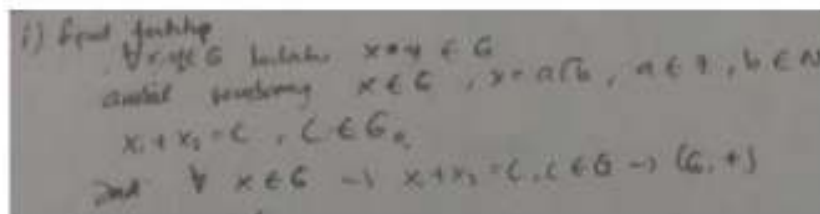 i) sifat tertutup
∀ x,y ∈ G berlaku x * y ∈ G
ambil sembarang x ∈ G, x = a√b, a ∈ , b ∈ N
x₁ + x₂ = C, C ∈ G
∀ x ∈ G → x₁ + x₂ = C, C ∈ G → (G, +)